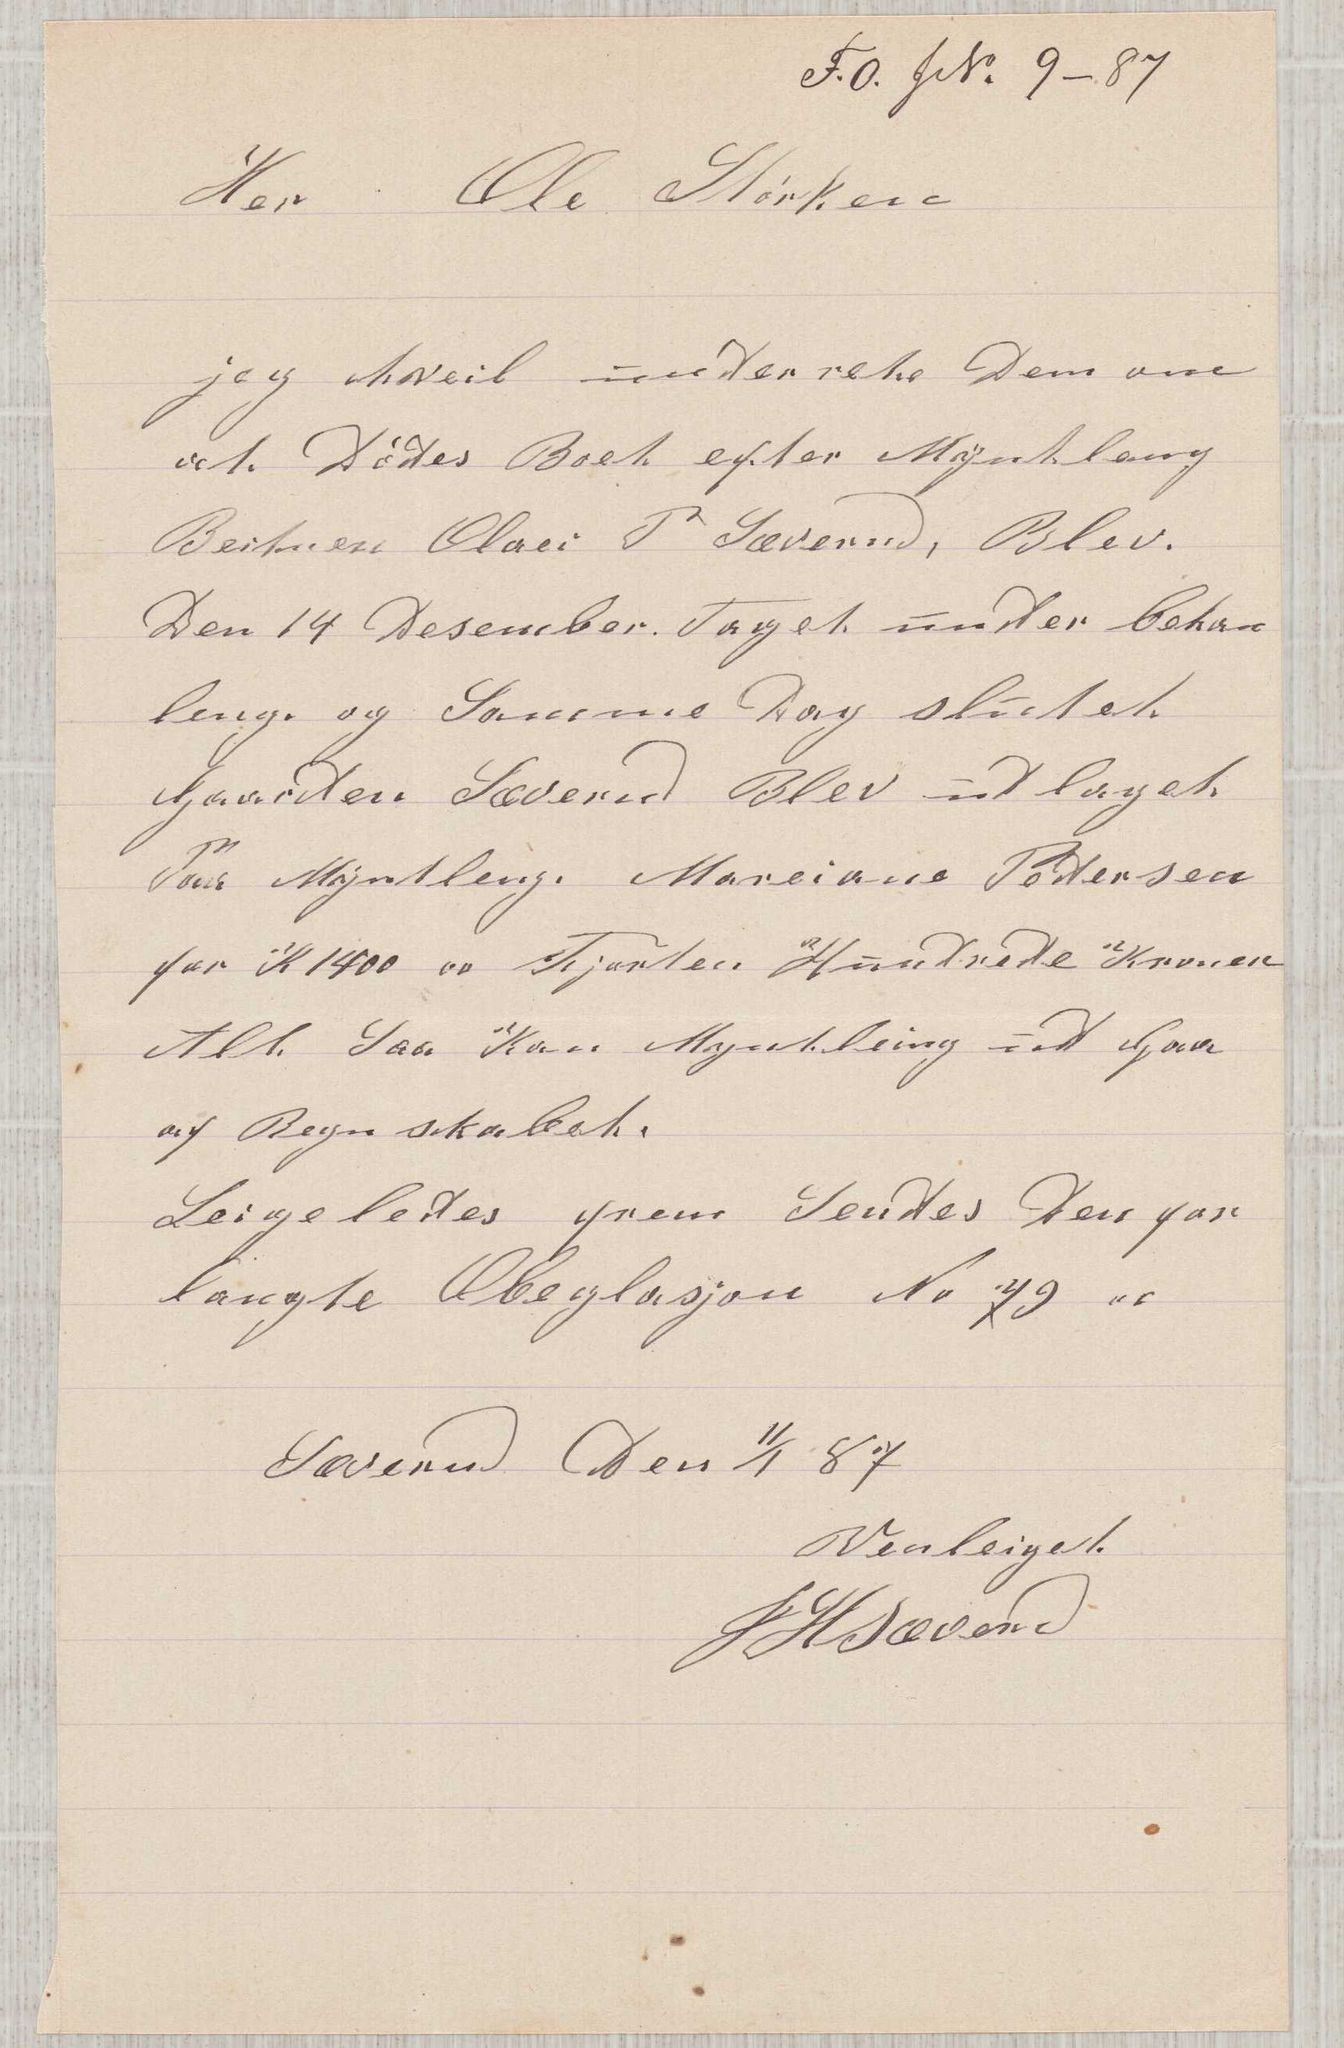 F.O. JN. 9-87
Her Ole Störken
jeg hveil underrete Dem om
at Dödes Boet efter Mÿntleng
Olaei P Sæverud, Blev.
Den 14 Desember. Taget under behan
leng. og Samme Dag slutet
Gaarden Sæverud Blev udlaget
Paa Mÿntleng. Mareiane Pedersen
for K 1400 " Fjorten Hundrede Kroner
Alt Saa Kan Myntleing ud Gaa
af Regnskabet.
Leigeledes frem Sendes Den for
langte Obeglasjon No 79 "
Sæverud Den 11/1 87
Venleiget
JHSæverud